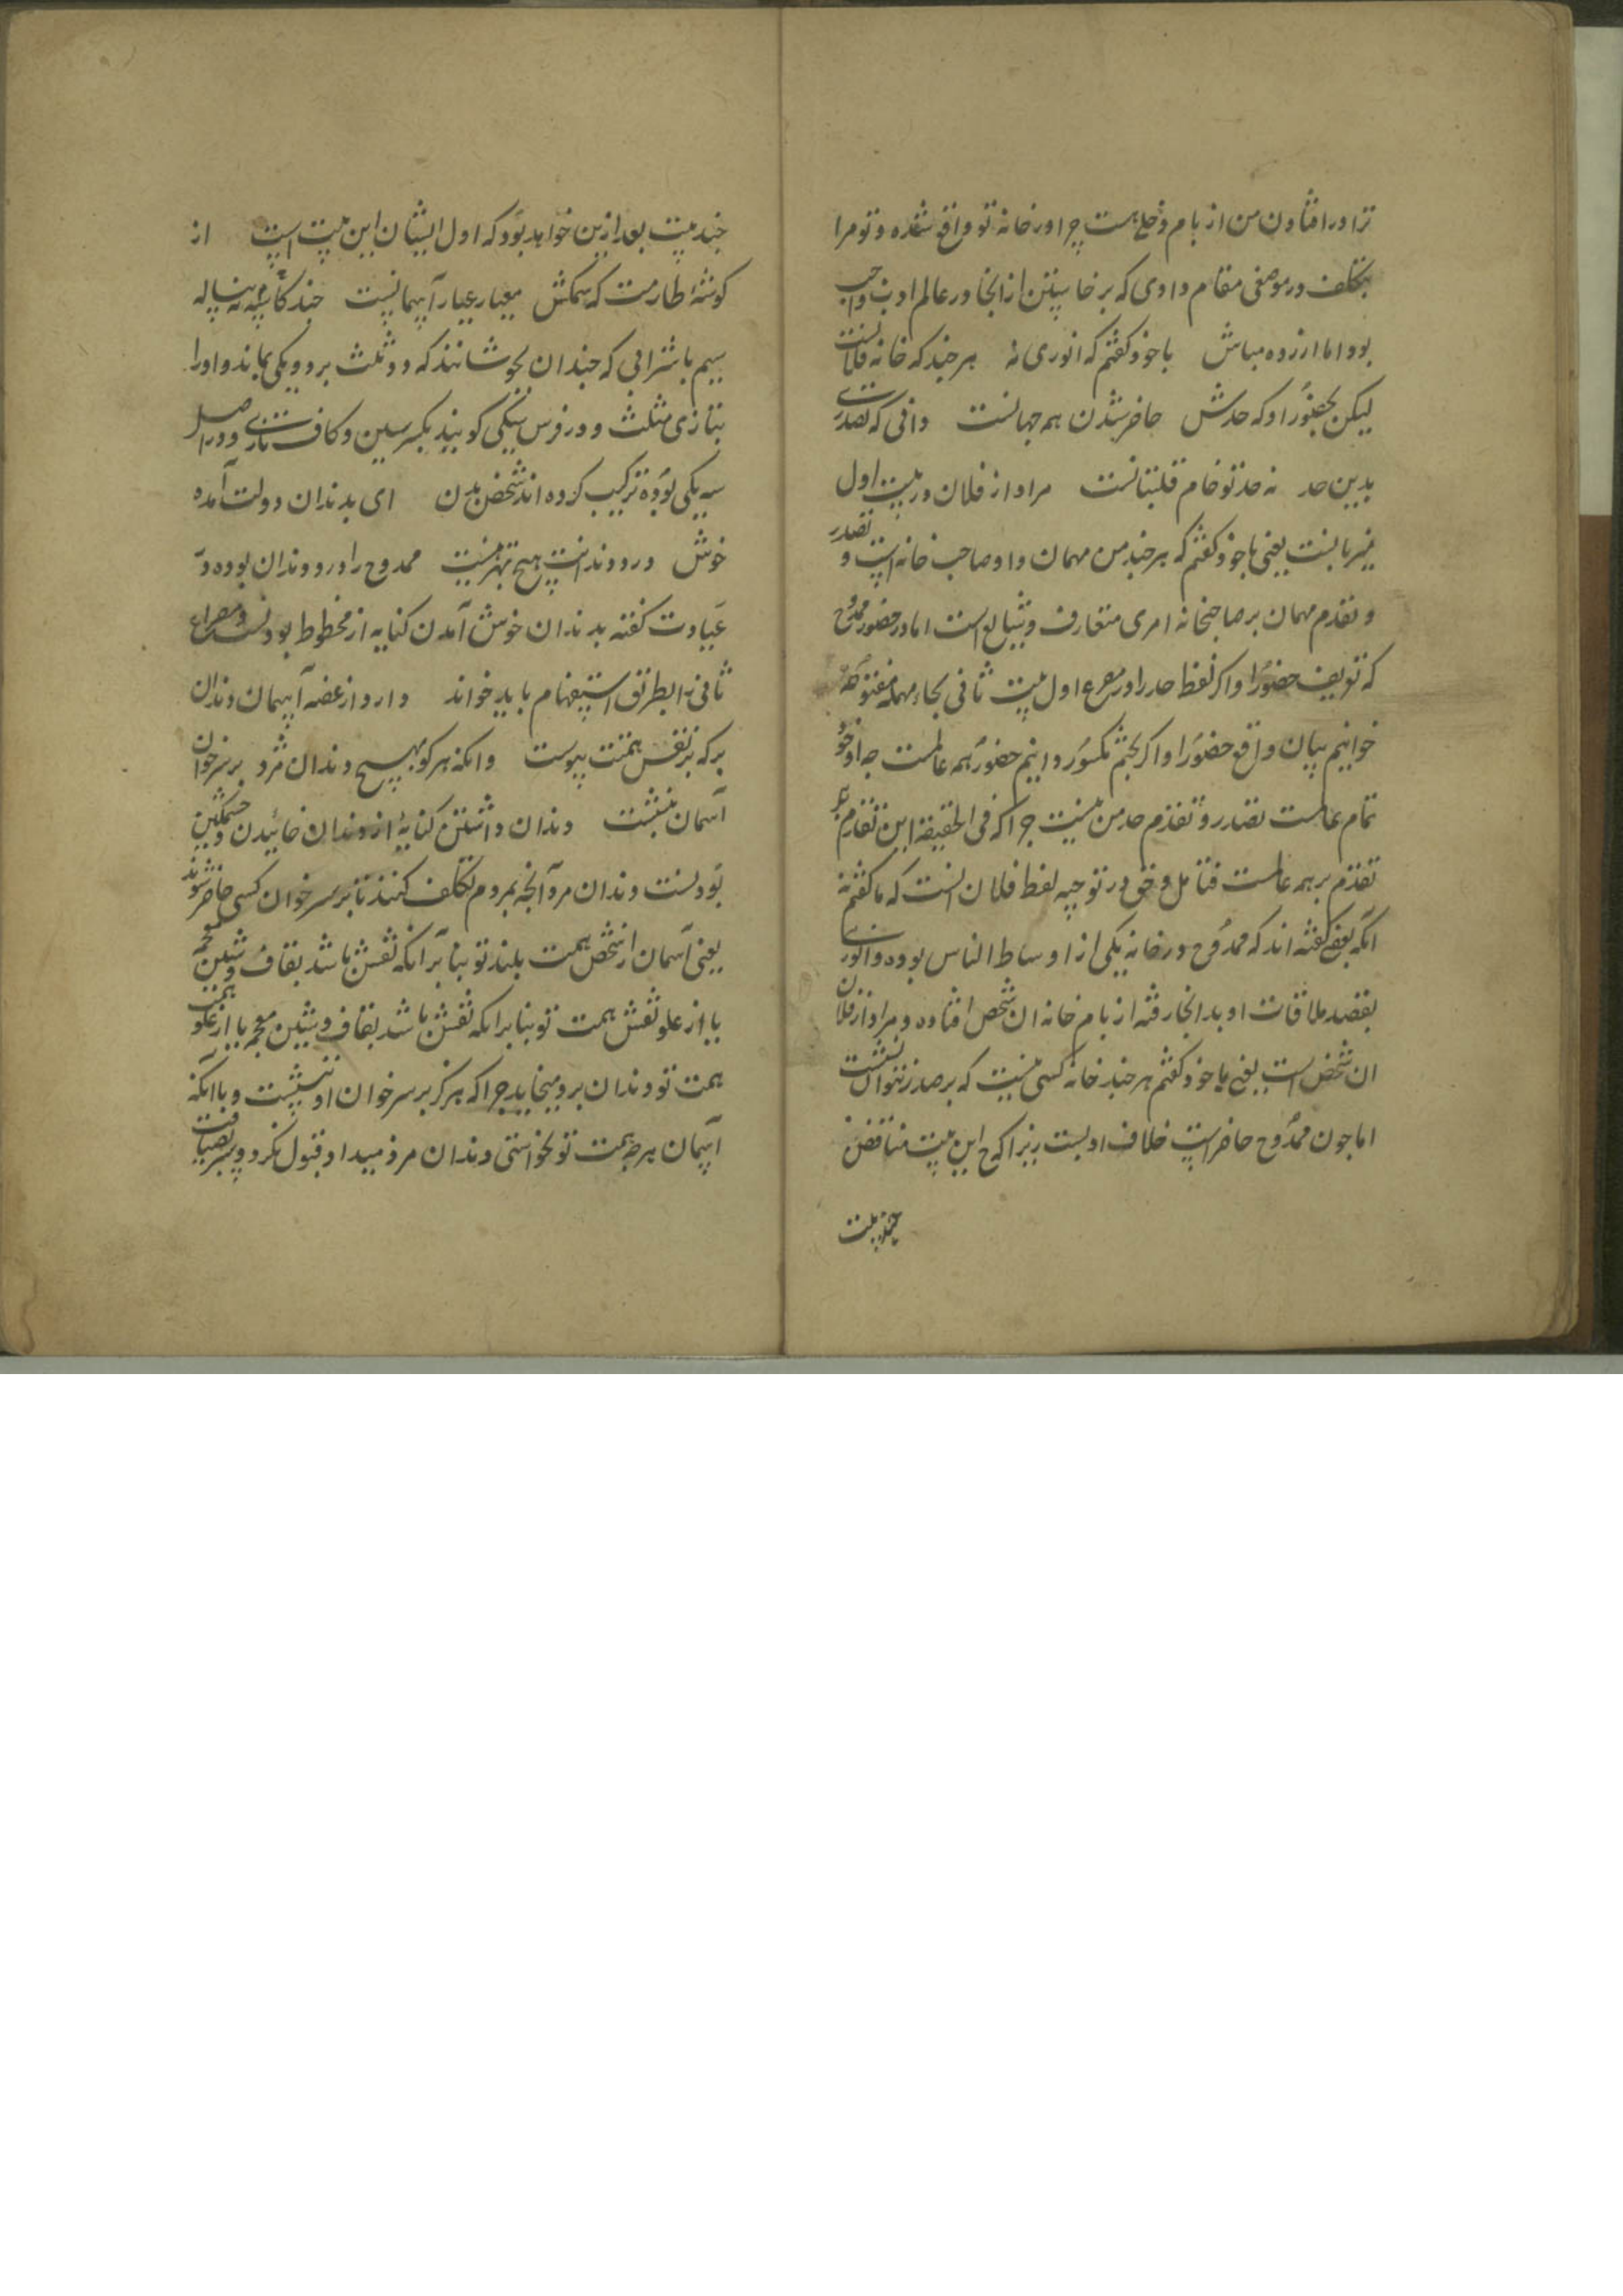 ترا در افتادن من از بام دخلی هست چرا در خانه تو واقع شده و تو مرا
بتکلف در موضعی مقام دادی که برخاستن از انجا در عالم ادب واجب
بود اما ازرده مباش با خود کفتم که انوری نه هر چند که خانه فلانست
لیکن بحضور او که حدش حاضر شدن همه جهانست دانی که تصدری
بدین حد نه حد تو خام قلتبانست مراد از فلان در بیت اول
میزبانست یعنی با خود کفتم که هر چند من مهمان و او صاحب خانه است و تصدر
و تقدم مهمان بر صاحبخانه امری متعارف و شایع است اما در حضور ممدوح
که تعریف حضور او اکر لفظ حد را در مصرع اول بیت ثانی بحاء مهمله مفتوحه
خوانیم بیان واقع حضور او اکر بجیم مکسور دانیم حضور همه عالمست چه او خود
تمام عالمست تصدر و تقدم حد من نیست چرا که فی الحقیقة این تقدم بر
تقدم بر همه عالمست فتامل و حق در توجیه لفظ فلان انست که ما کفتیم نه
انکه بعضی کفته اند که ممدوح در خانه یکی از اوساط الناس بوده و انوری
بقصد ملاقات او بدانجا رفته از بام خانه ان شخص افتاده و مراد از فلان
ان شخص است یعنی با خود کفتم هر چند خانه کسی نیست که بر صدر نتوان نشست
اما چون ممدوح حاضر است خلاف ادبست زیرا که این بیت مناقض
چند بیت
چند بیت بعد ازین خواهد بود که اول ایشان این بیت است از
کوشه طارمت که سمکش معیار عیار آسمانیست چند کاسه نه پیاله
سیم با شرابی که چندان بجوشانند که دو ثلث برود و یکی بماند و او را
بتازی مثلث و در فرس سیکی کویند بکسر سین و کاف تازی و در اصل
سه یکی بوده ترکیب کرده اند شخص بدن ای بدندان دولت آمده
خوش درد دندانت هیچ بهتر نیست ممدوح را درد دندان بوده در
عیادت کفته بدندان خوش آمدن کنایه از محظوظ بودنست و مصراع
ثانی را بطریق استفهام باید خواند دارد از غصه آسمان دندان
بر که بر نقش همتت پیوست وانکه هر کو بهیچ دندان مزد بر سر خوان
آسمان ننشست دندان داشتن کنایه از دندان خائیدن و خشمکین
بودنست دندان مزد آنچه بمردم تکلف کنند تا بر سر خوان کسی حاضر شوند
یعنی آسمان از شخص همت بلند تو بنا بر آنکه نقش باشد بقاف و شین معجمه
یا از علو نقش همت تو بنا بر انکه نقش باشد بقاف و شین معجمه یا از علو همت
همت تو دندان برو میخاید چرا که هرکز بر سر خوان او ننشست و با انکه
آسمان هر چه همت تو نخواستی دندان مزد میداد قبول نکرد و بسر ضیافت